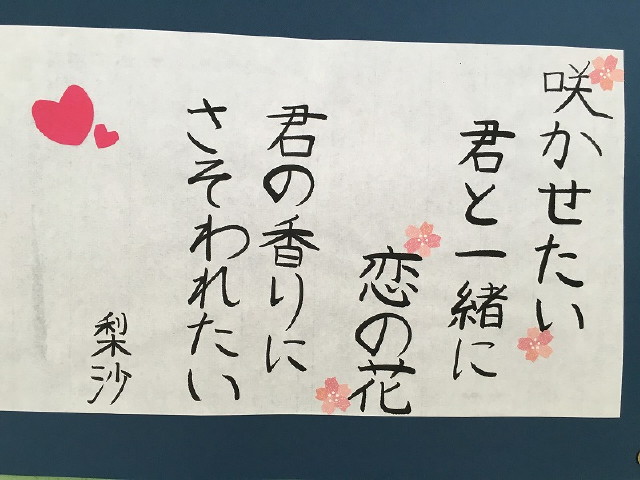 咲かせたい
君と一緒に
恋の花
君の香りに
さそわれたい
梨沙